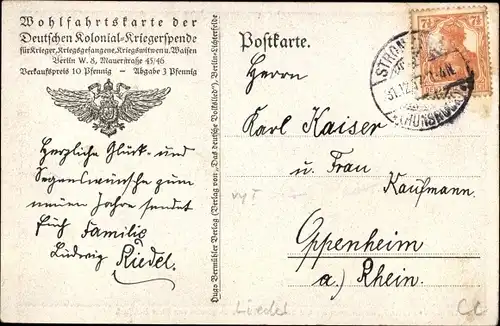 Wohlfahrtskarte der
Deutschen Kolonial-Kriegerspende
für Krieger, Kriegsgefangene, Kriegswitwen u. Waisen
Berlin W. 8, Mauerstraße 45/46
Verkaufspreis 10 Pfennig – Abgabe 3 Pfennig
Herzliche Glück- und
Segenswünsche zum
neuen Jahre sendet
Euch Familie
Ludwig Riedel.
Hugo Vermühler Verlag (Verlag von „Das deutsche Volkslied“), Berlin-Lichterfelde
Postkarte.
7½
7½
STROM
31.12.17
(HUNSRÜCK)
Herrn
Karl Kaiser
u. Frau
Kaufmann
Oppenheim
a) Rhein.
Lieder